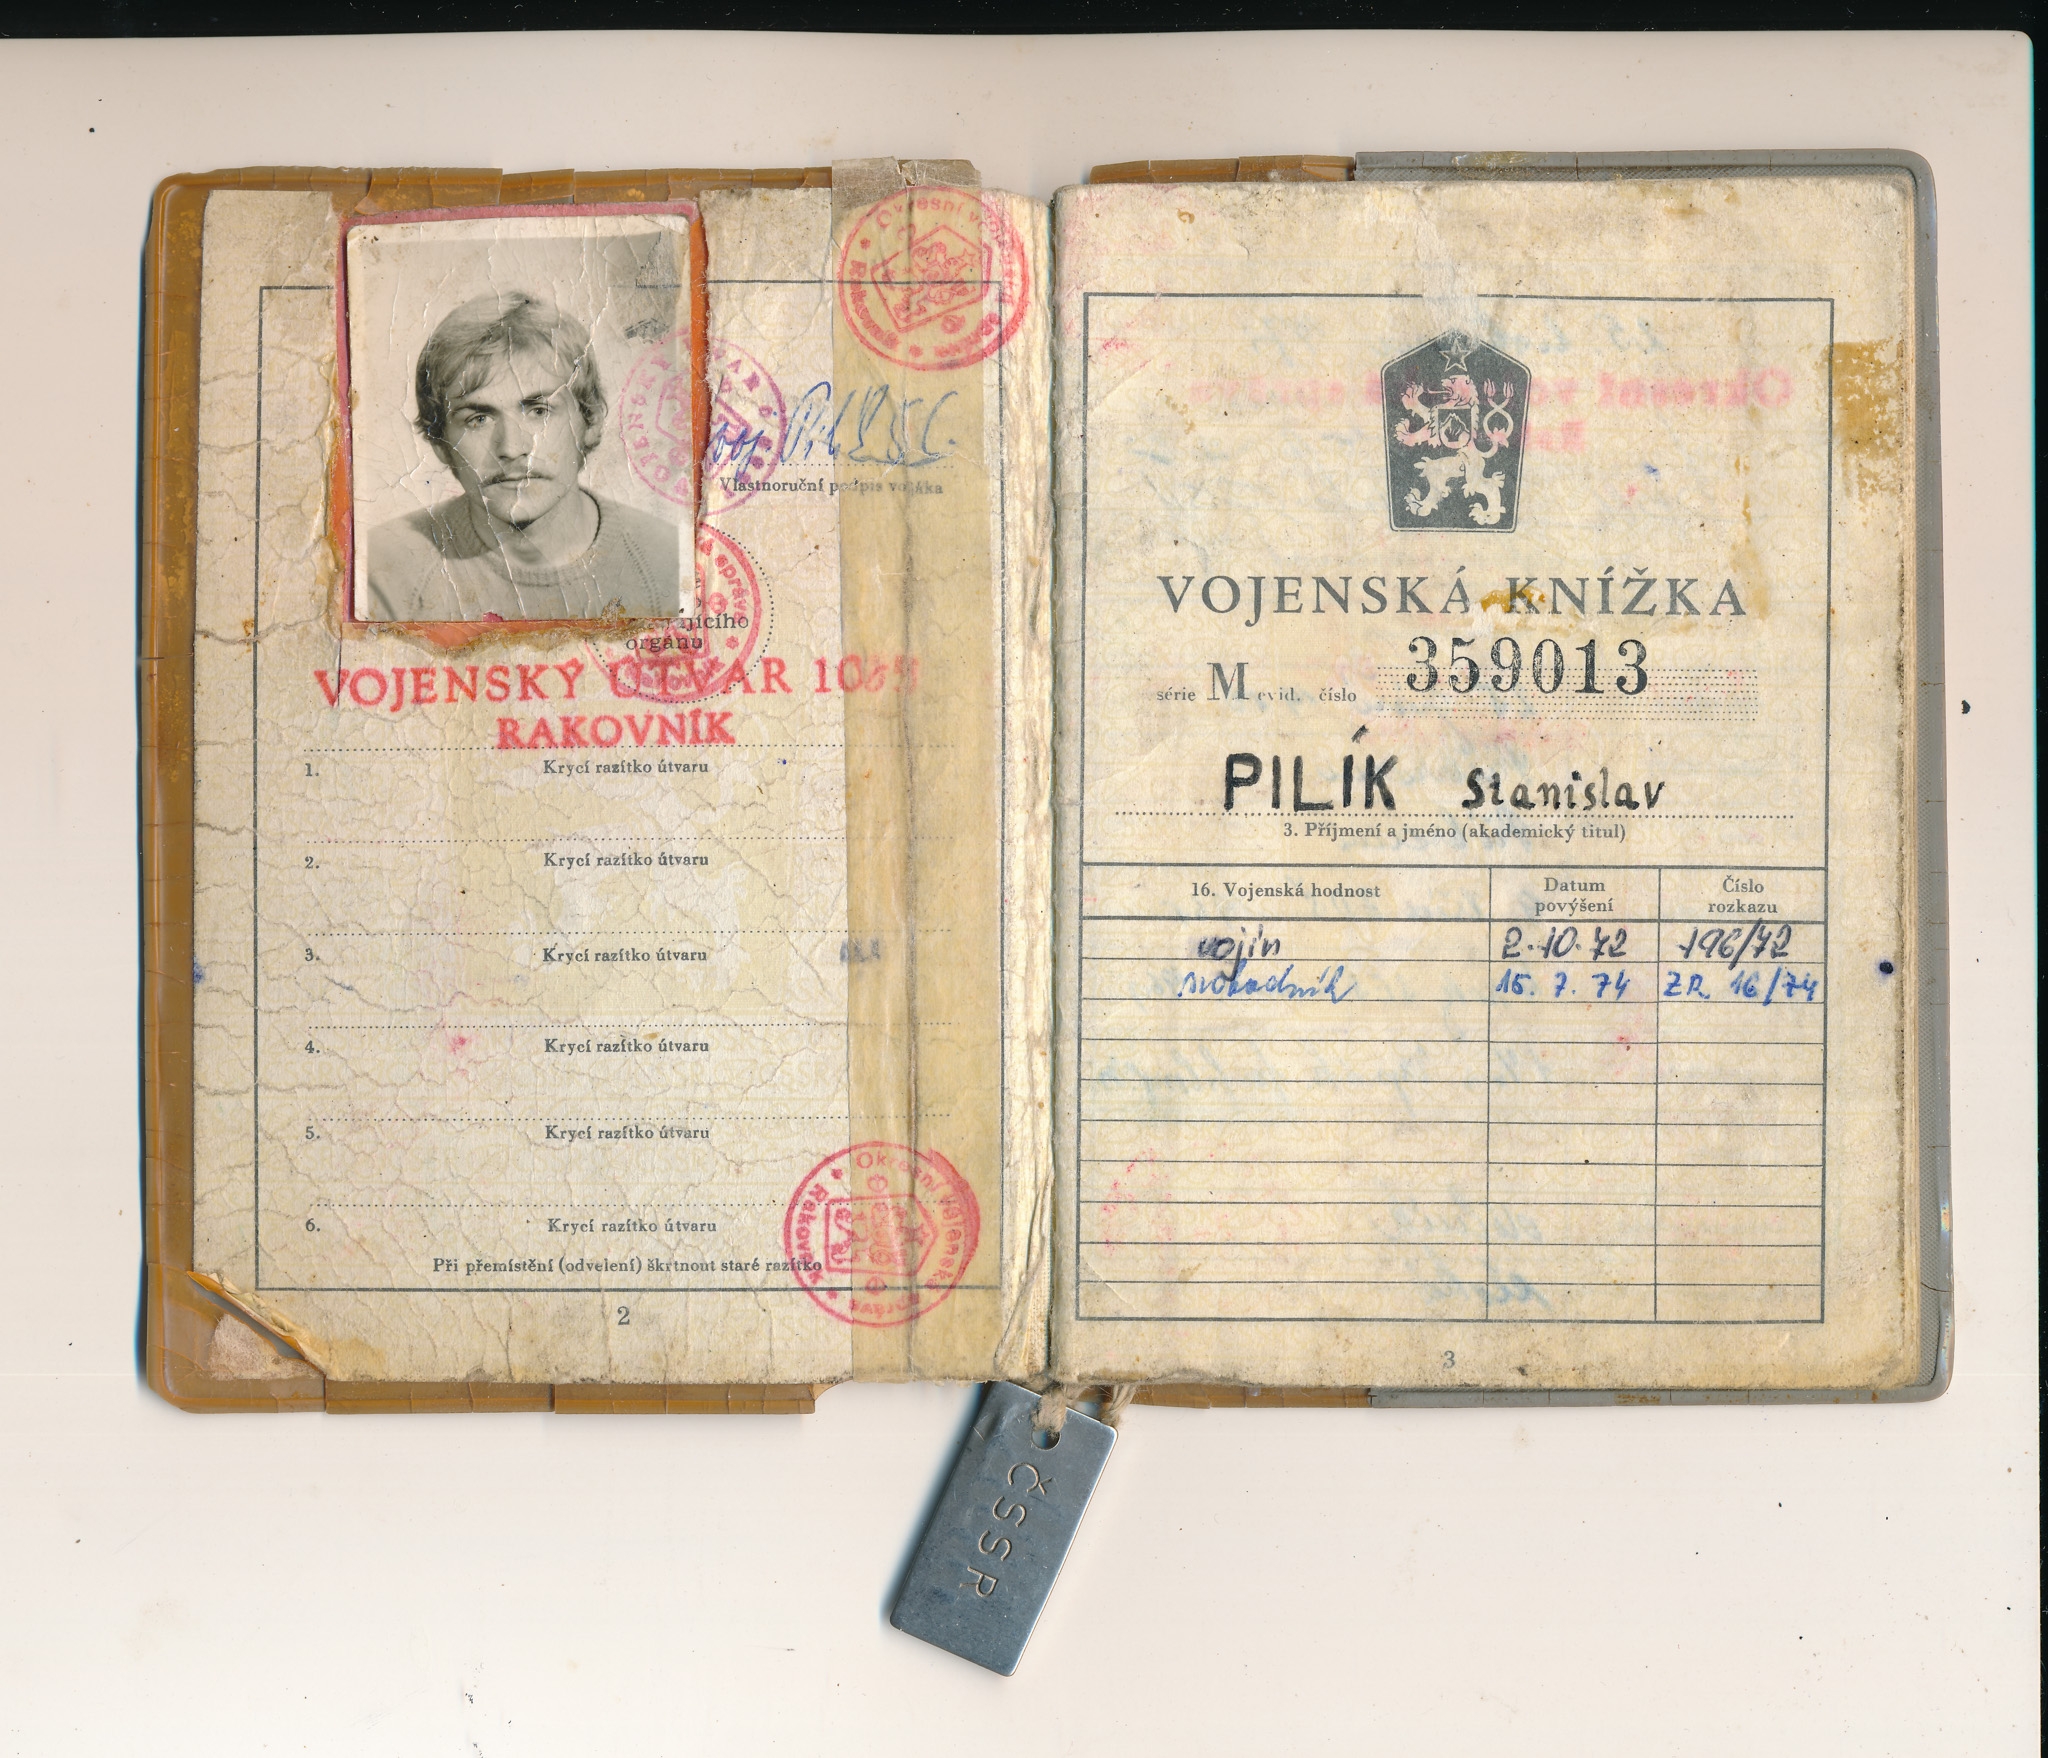 Okresní vojenská správa
Rakovník
voj.
Vlastnoruční podpis vojáka
orgánu
VOJENSKÝ ÚTVAR
RAKOVNÍK
1. Krycí razítko útvaru
2. Krycí razítko útvaru
3. Krycí razítko útvaru
4. Krycí razítko útvaru
5. Krycí razítko útvaru
6. Krycí razítko útvaru
Při přemístění (odvelení) škrtnout staré razítko
Okresní vojenská správa
Rakovník
2
VOJENSKÁ KNÍŽKA
série M evid. číslo 359013
PILÍK Stanislav
3. Příjmení a jméno (akademický titul)
16. Vojenská hodnost Datum povýšení Číslo rozkazu
vojín 2.10.72 196/72
svobodník 15. 7. 74 ZR 16/74
3
ČSSR